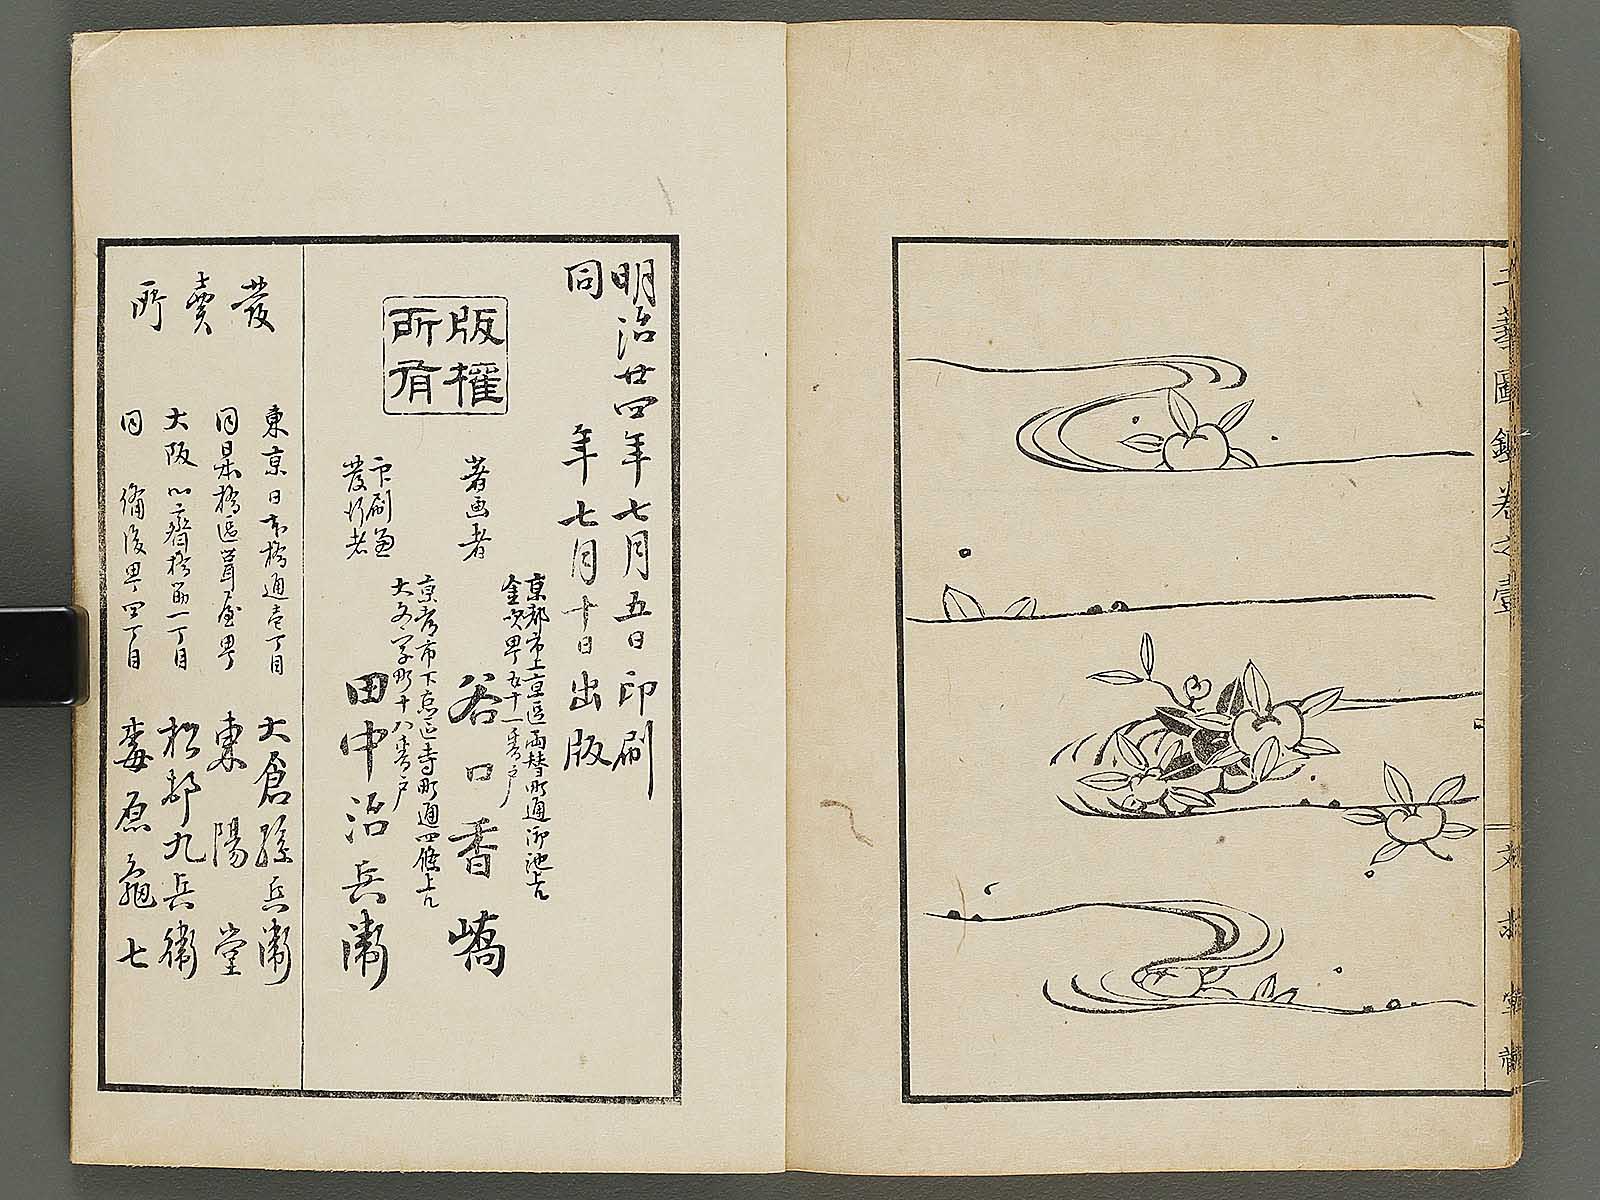 工華圖鑑卷之壹
一
明治廿四年七月五日印刷
同年七月十日出版
版權
所有
著画者
京都市上京區両替町通御池上ル
金吹町五十一番戸
谷口香嶠
印刷兼
發行者
京都市下京區寺町通四條上ル
大文字町十八番戸
田中治兵衛
發賣所
東京日本橋通壱丁目
大倉孫兵衛
同日本橋區葺屋町
東陽堂
大阪心齋橋筋一丁目
松村九兵衛
同備後町四丁目
梅原亀七